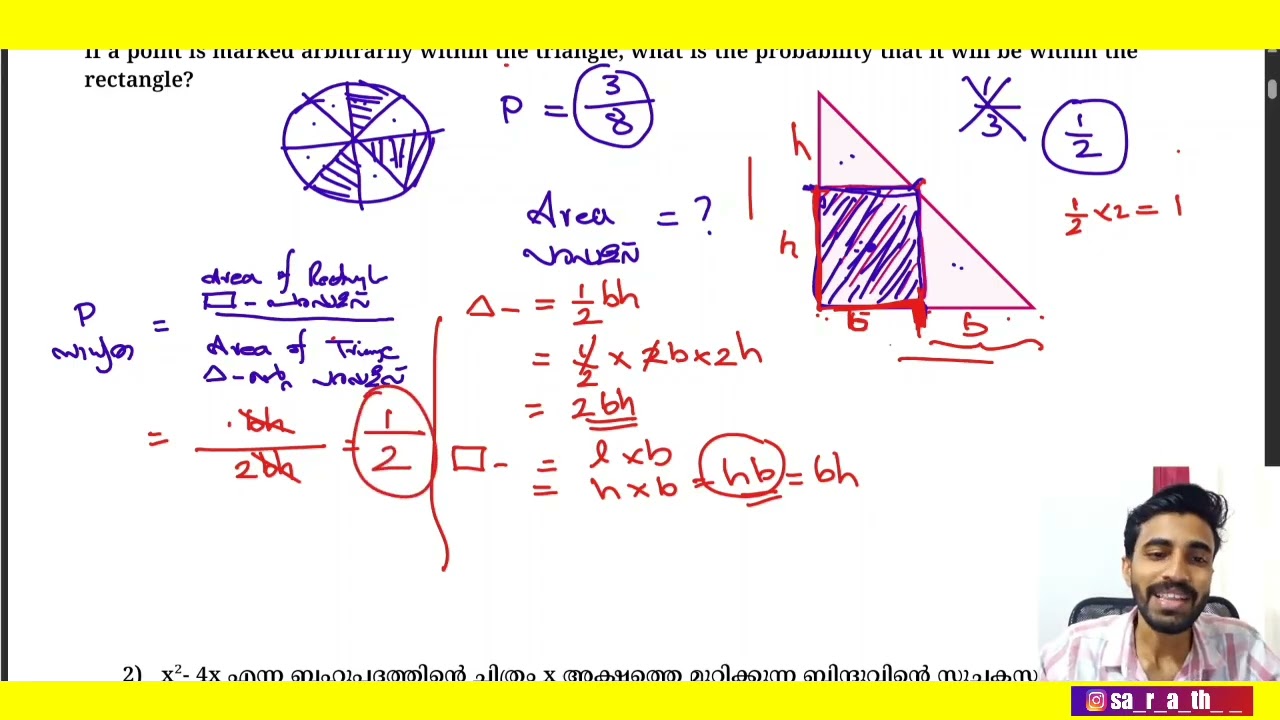 If a point is marked arbitrarily within the triangle, what is the probability that it will be within the
rectangle?
P = 3/8
h
1/3
1/2
1/2 × 2 = 1
Area = ?
പരപ്പളവ്
h
Area of
□ - പരപ്പളവ്
P =
സാധ്യത
Area of
Δ - പരപ്പളവ്
Δ - = 1/2 bh
= 1/2 × 2b × 2h
= 2bh
b b
= bh/2bh = 1/2
□ - = l × b
= h × b = hb = bh
2) x²- 4x എന്ന ബഹുപദത്തിന്റെ ചിത്രം x അക്ഷത്തെ മുറിക്കുന്ന ബിന്ദുവിന്റെ സൂചകസ
sa_r_a_th_ _